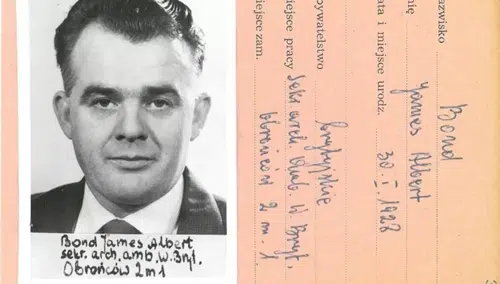 Bond James Albert
sekr. arch. amb. W. Bryt.
Obrońców 2 m 1
azwisko Bond
mię James Albert
ata i miejsce urodz. 30.I.1928
bywatelstwo brytyjskie
iejsce pracy Sekr. arch. Amb. W. Bryt.
iejsce zam. Obrońców 2 m. 1